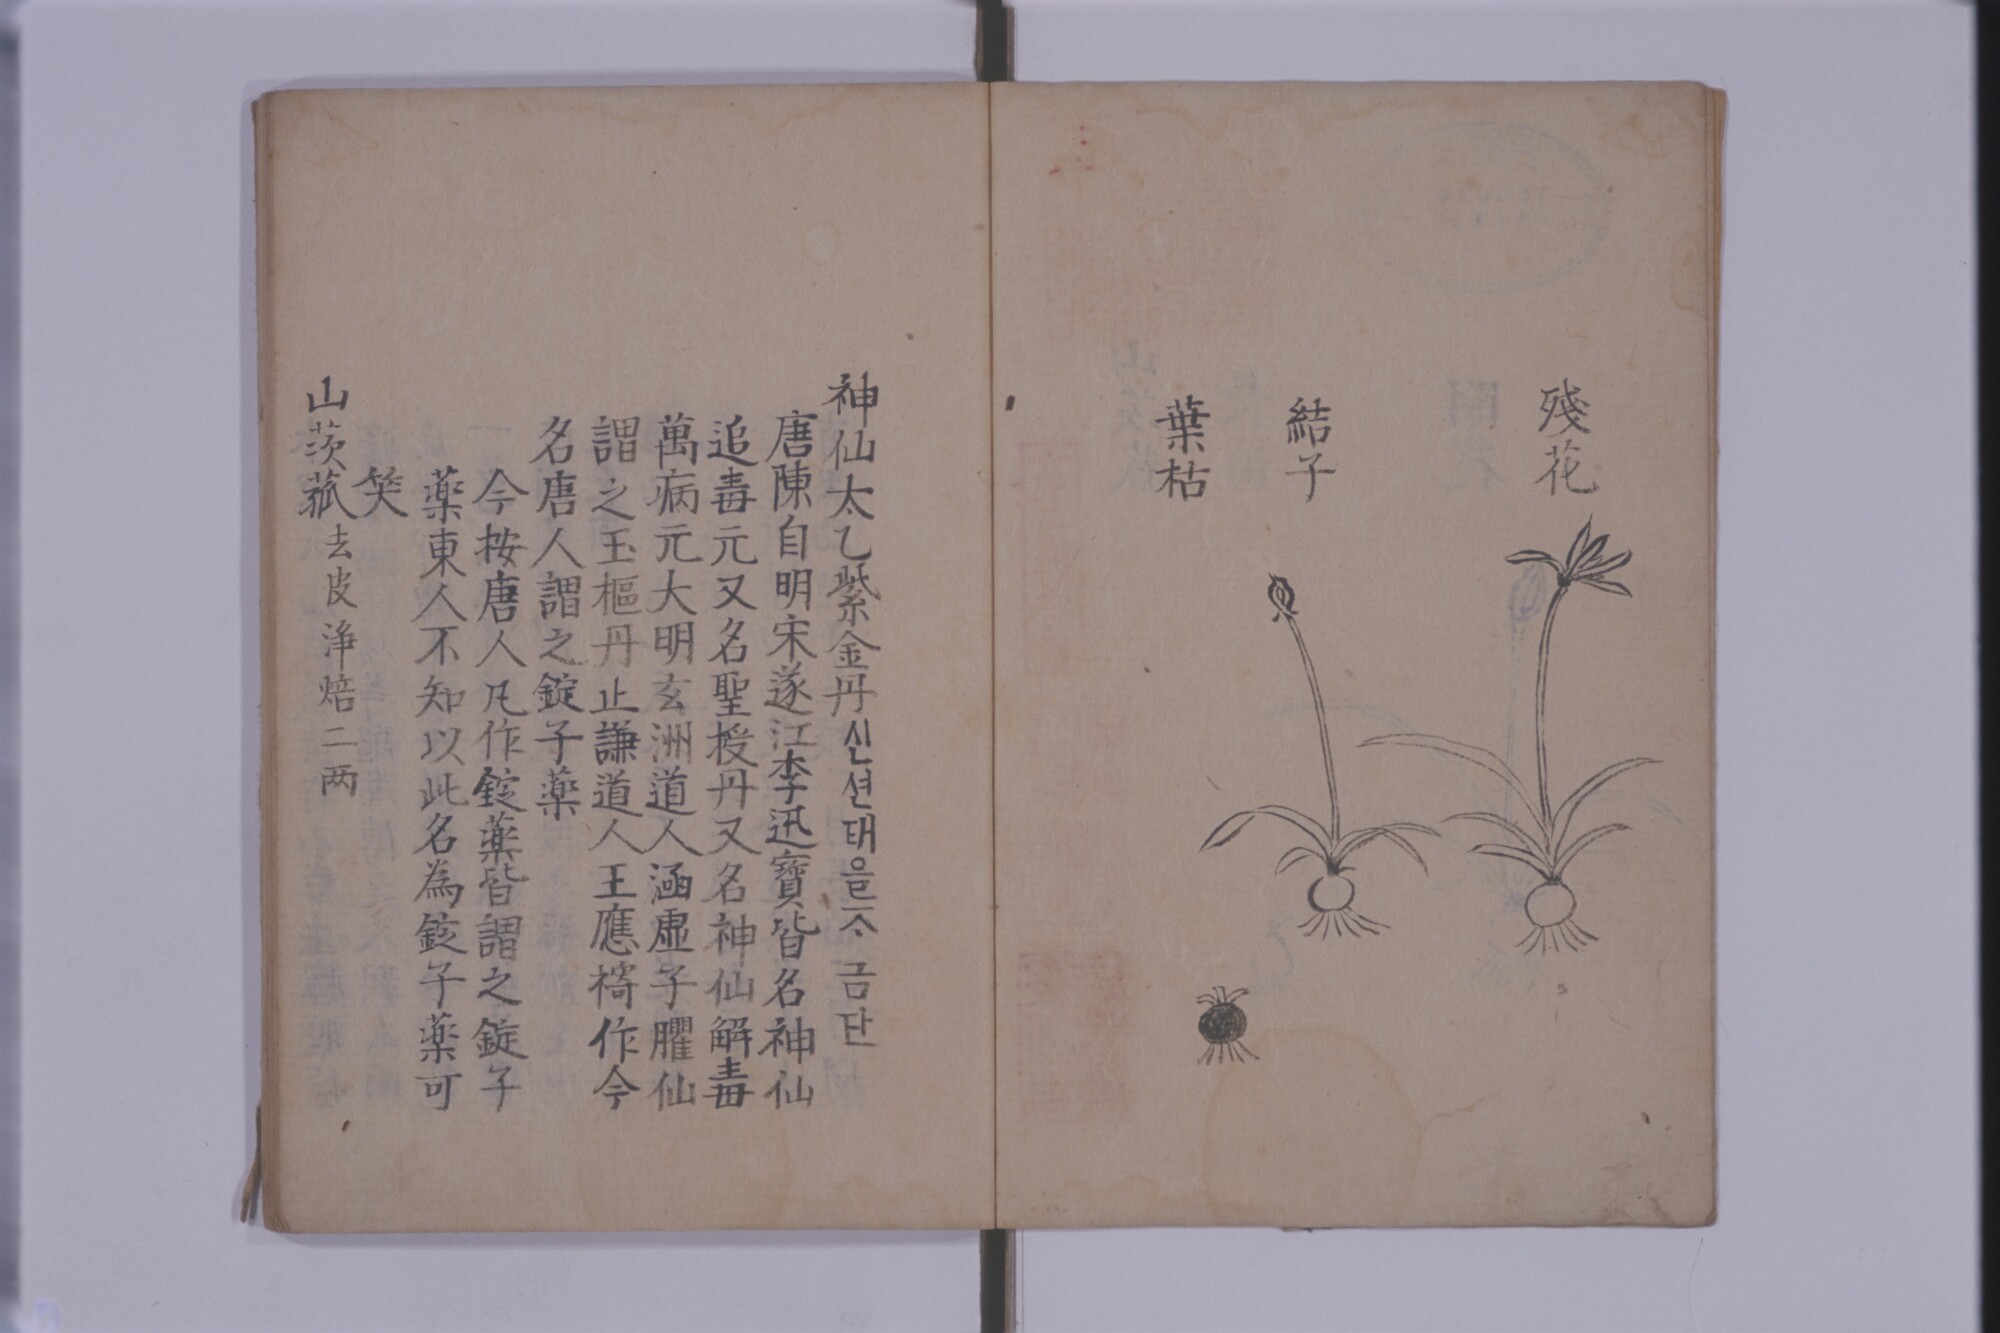 殘花
結子
葉枯
神仙太乙紫金丹신션태을ᄌᆞ금단
唐陳自明宋遂江李迅寶皆名神仙
追毒元又名聖授丹又名神仙解毒
萬病元大明玄洲道人涵虛子臞仙
謂之玉樞丹止謙道人王應𥚃作今
名唐人謂之錠子藥
今按唐人凡作錠藥皆謂之錠子
藥東人不知以此名為錠子藥可
笑
山茨菰去皮淨焙二两